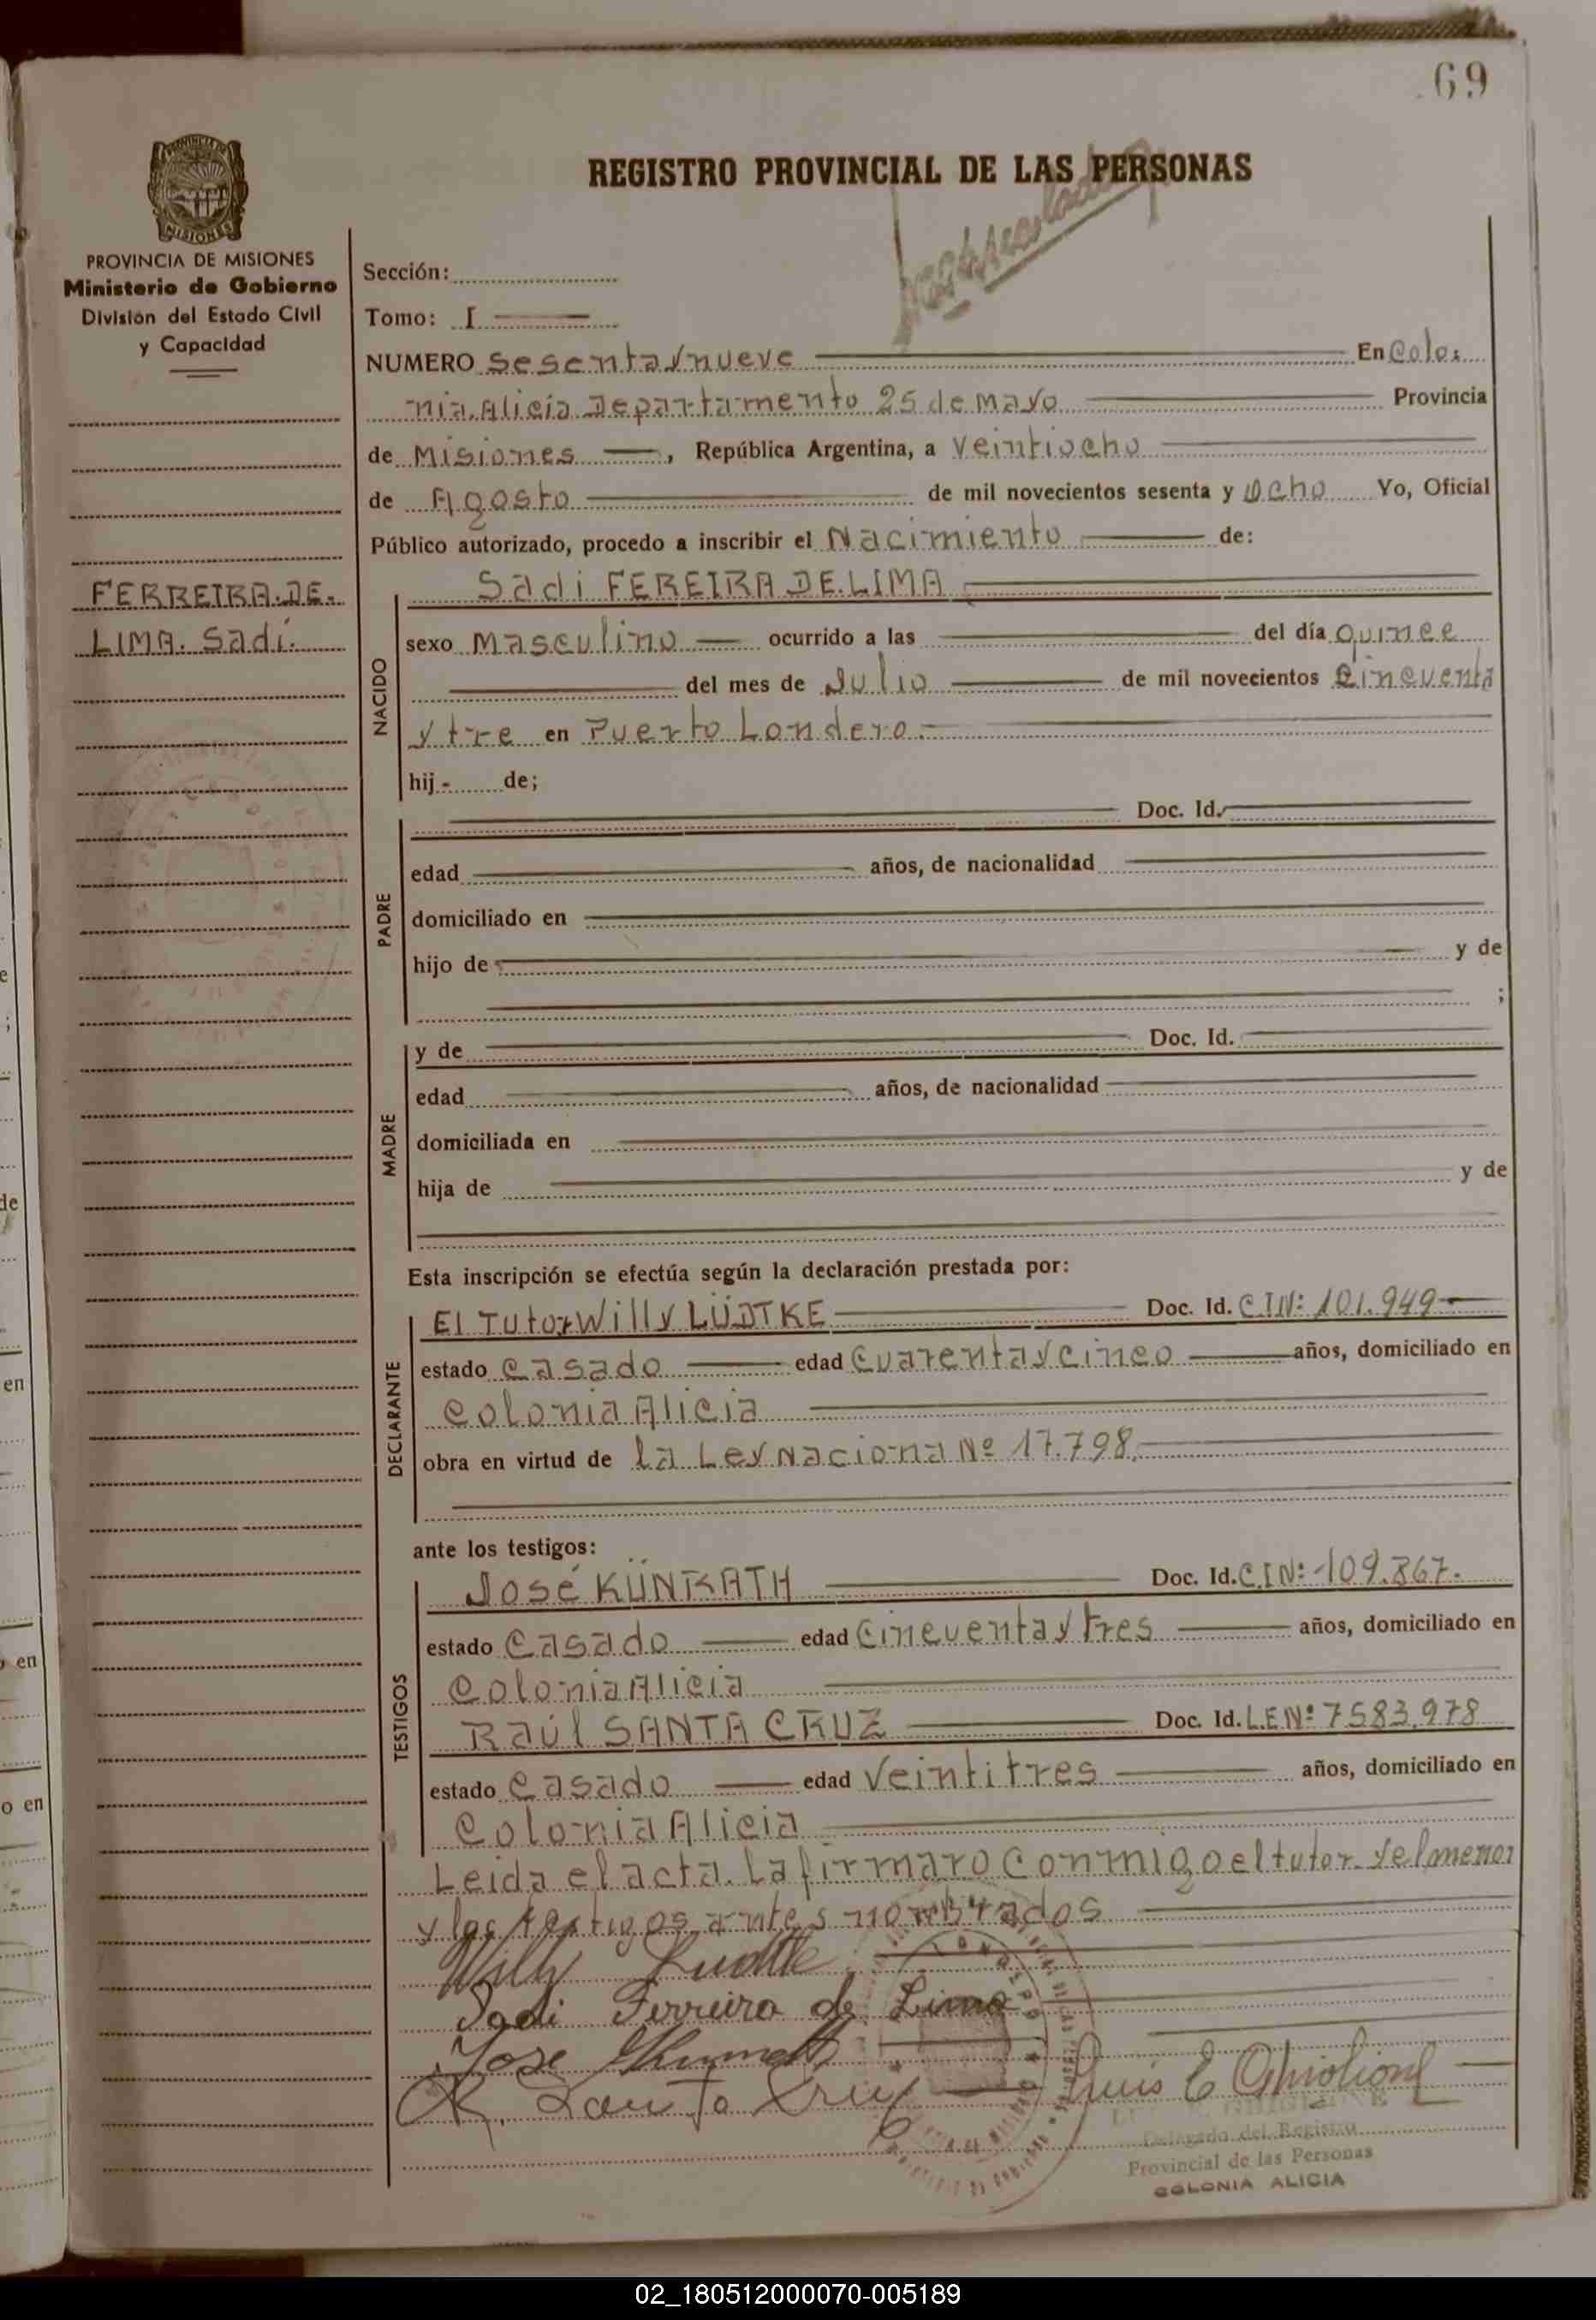 69
REGISTRO PROVINCIAL DE LAS PERSONAS
PROVINCIA DE MISIONES
Ministerio de Gobierno
División del Estado Civil
y Capacidad
Sección:
Tomo: I
NUMERO Sesenta y nueve En Colo:
nia. Alicia Departamento 25 de Mayo Provincia
de Misiones, República Argentina, a Veintiocho
de Agosto de mil novecientos sesenta y Ocho Yo, Oficial
Público autorizado, procedo a inscribir el Nacimiento de:
FERREIRA.DE.
LIMA. Sadi.
NACIDO
Sadi FEREIRA DE.LIMA
sexo Masculino ocurrido a las del día quince
del mes de Julio de mil novecientos Cincuenta
y tre en Puerto Londero.-
hij - de;
PADRE
Doc. Id.
edad años, de nacionalidad
domiciliado en
hijo de y de
;
MADRE
y de Doc. Id.
edad años, de nacionalidad
domiciliada en
hija de y de
Esta inscripción se efectúa según la declaración prestada por:
DECLARANTE
El Tutor Willy LÜDTKE Doc. Id. C.I.Nº 101.949
estado Casado edad Cuarenta y cinco años, domiciliado en
Colonia Alicia
obra en virtud de la Ley Naciona Nº 17.798.
ante los testigos:
TESTIGOS
José KÜNRATH Doc. Id. C.I Nº 109.867.
estado Casado edad Cincuenta y Tres años, domiciliado en
Colonia Alicia
Raúl SANTA CRUZ Doc. Id. L.E.Nº 7583.978
estado Casado edad Veintitres años, domiciliado en
Colonia Alicia
Leida el acta. La firmaro Conmigo el tutor. y el menor
y los testigos antes nombrados
Willy Ludtke
Sadi Ferreira de Lima
Jose
R. Santa Cruz Luis E
Delegado del Registro
Provincial de las Personas
COLONIA ALICIA
02_180512000070-005189